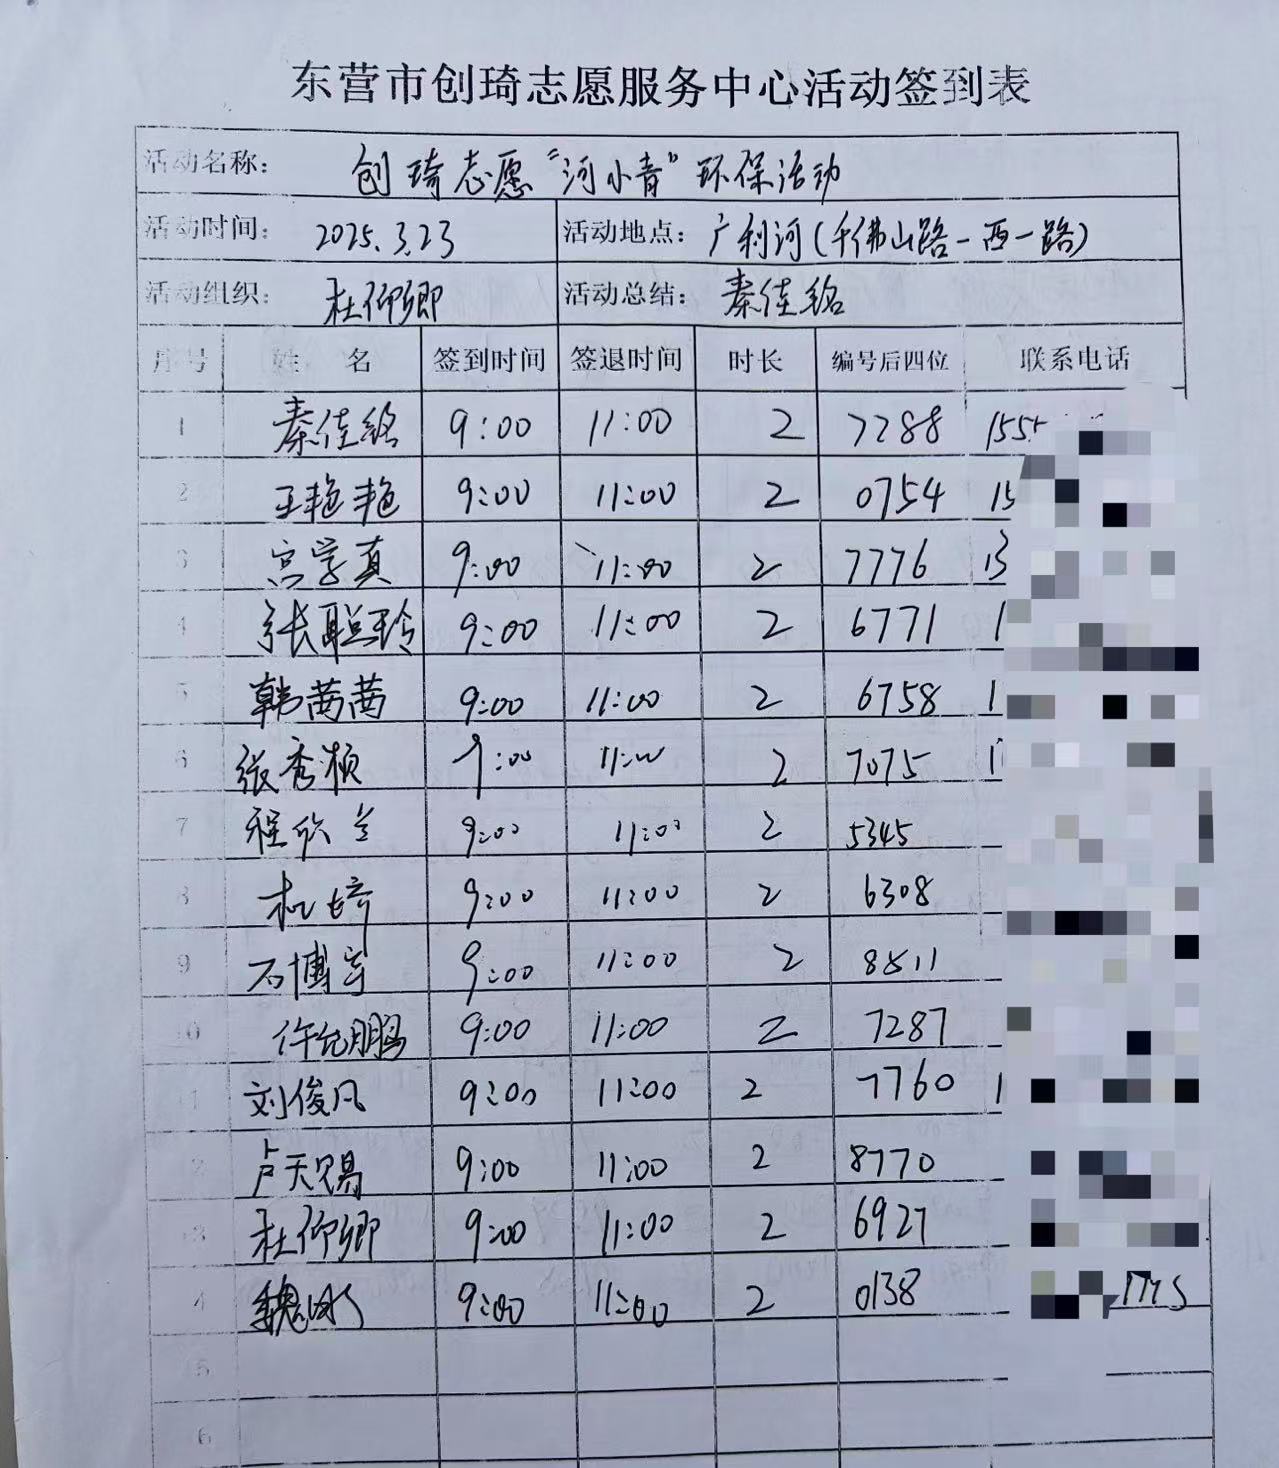 东营市创琦志愿服务中心活动签到表
活动名称： 创琦志愿“河小青”环保活动
活动时间： 2025.3.23 活动地点： 广利河(千佛山路-西一路)
活动组织： 杜仰卿 活动总结： 秦佳铭
序号 姓 名 签到时间 签退时间 时长 编号后四位 联系电话
1 秦佳铭 9:00 11:00 2 7288 155
2 王艳艳 9:00 11:00 2 0754 15
3 宫学真 9:00 11:00 2 7776 13
4 张聪玲 9:00 11:00 2 6771 1
5 韩茜茜 9:00 11:00 2 6758 1
6 张秀桢 9:00 11:00 2 7075 1
7 程欣兰 9:00 11:00 2 5345
8 杜琦 9:00 11:00 2 6308
9 石博宇 9:00 11:00 2 8811
10 许纪鹏 9:00 11:00 2 7287
11 刘俊凡 9:00 11:00 2 7760 1
12 卢天赐 9:00 11:00 2 8770
13 杜仰卿 9:00 11:00 2 6927
4 魏冰 9:00 11:00 2 0138
15
6